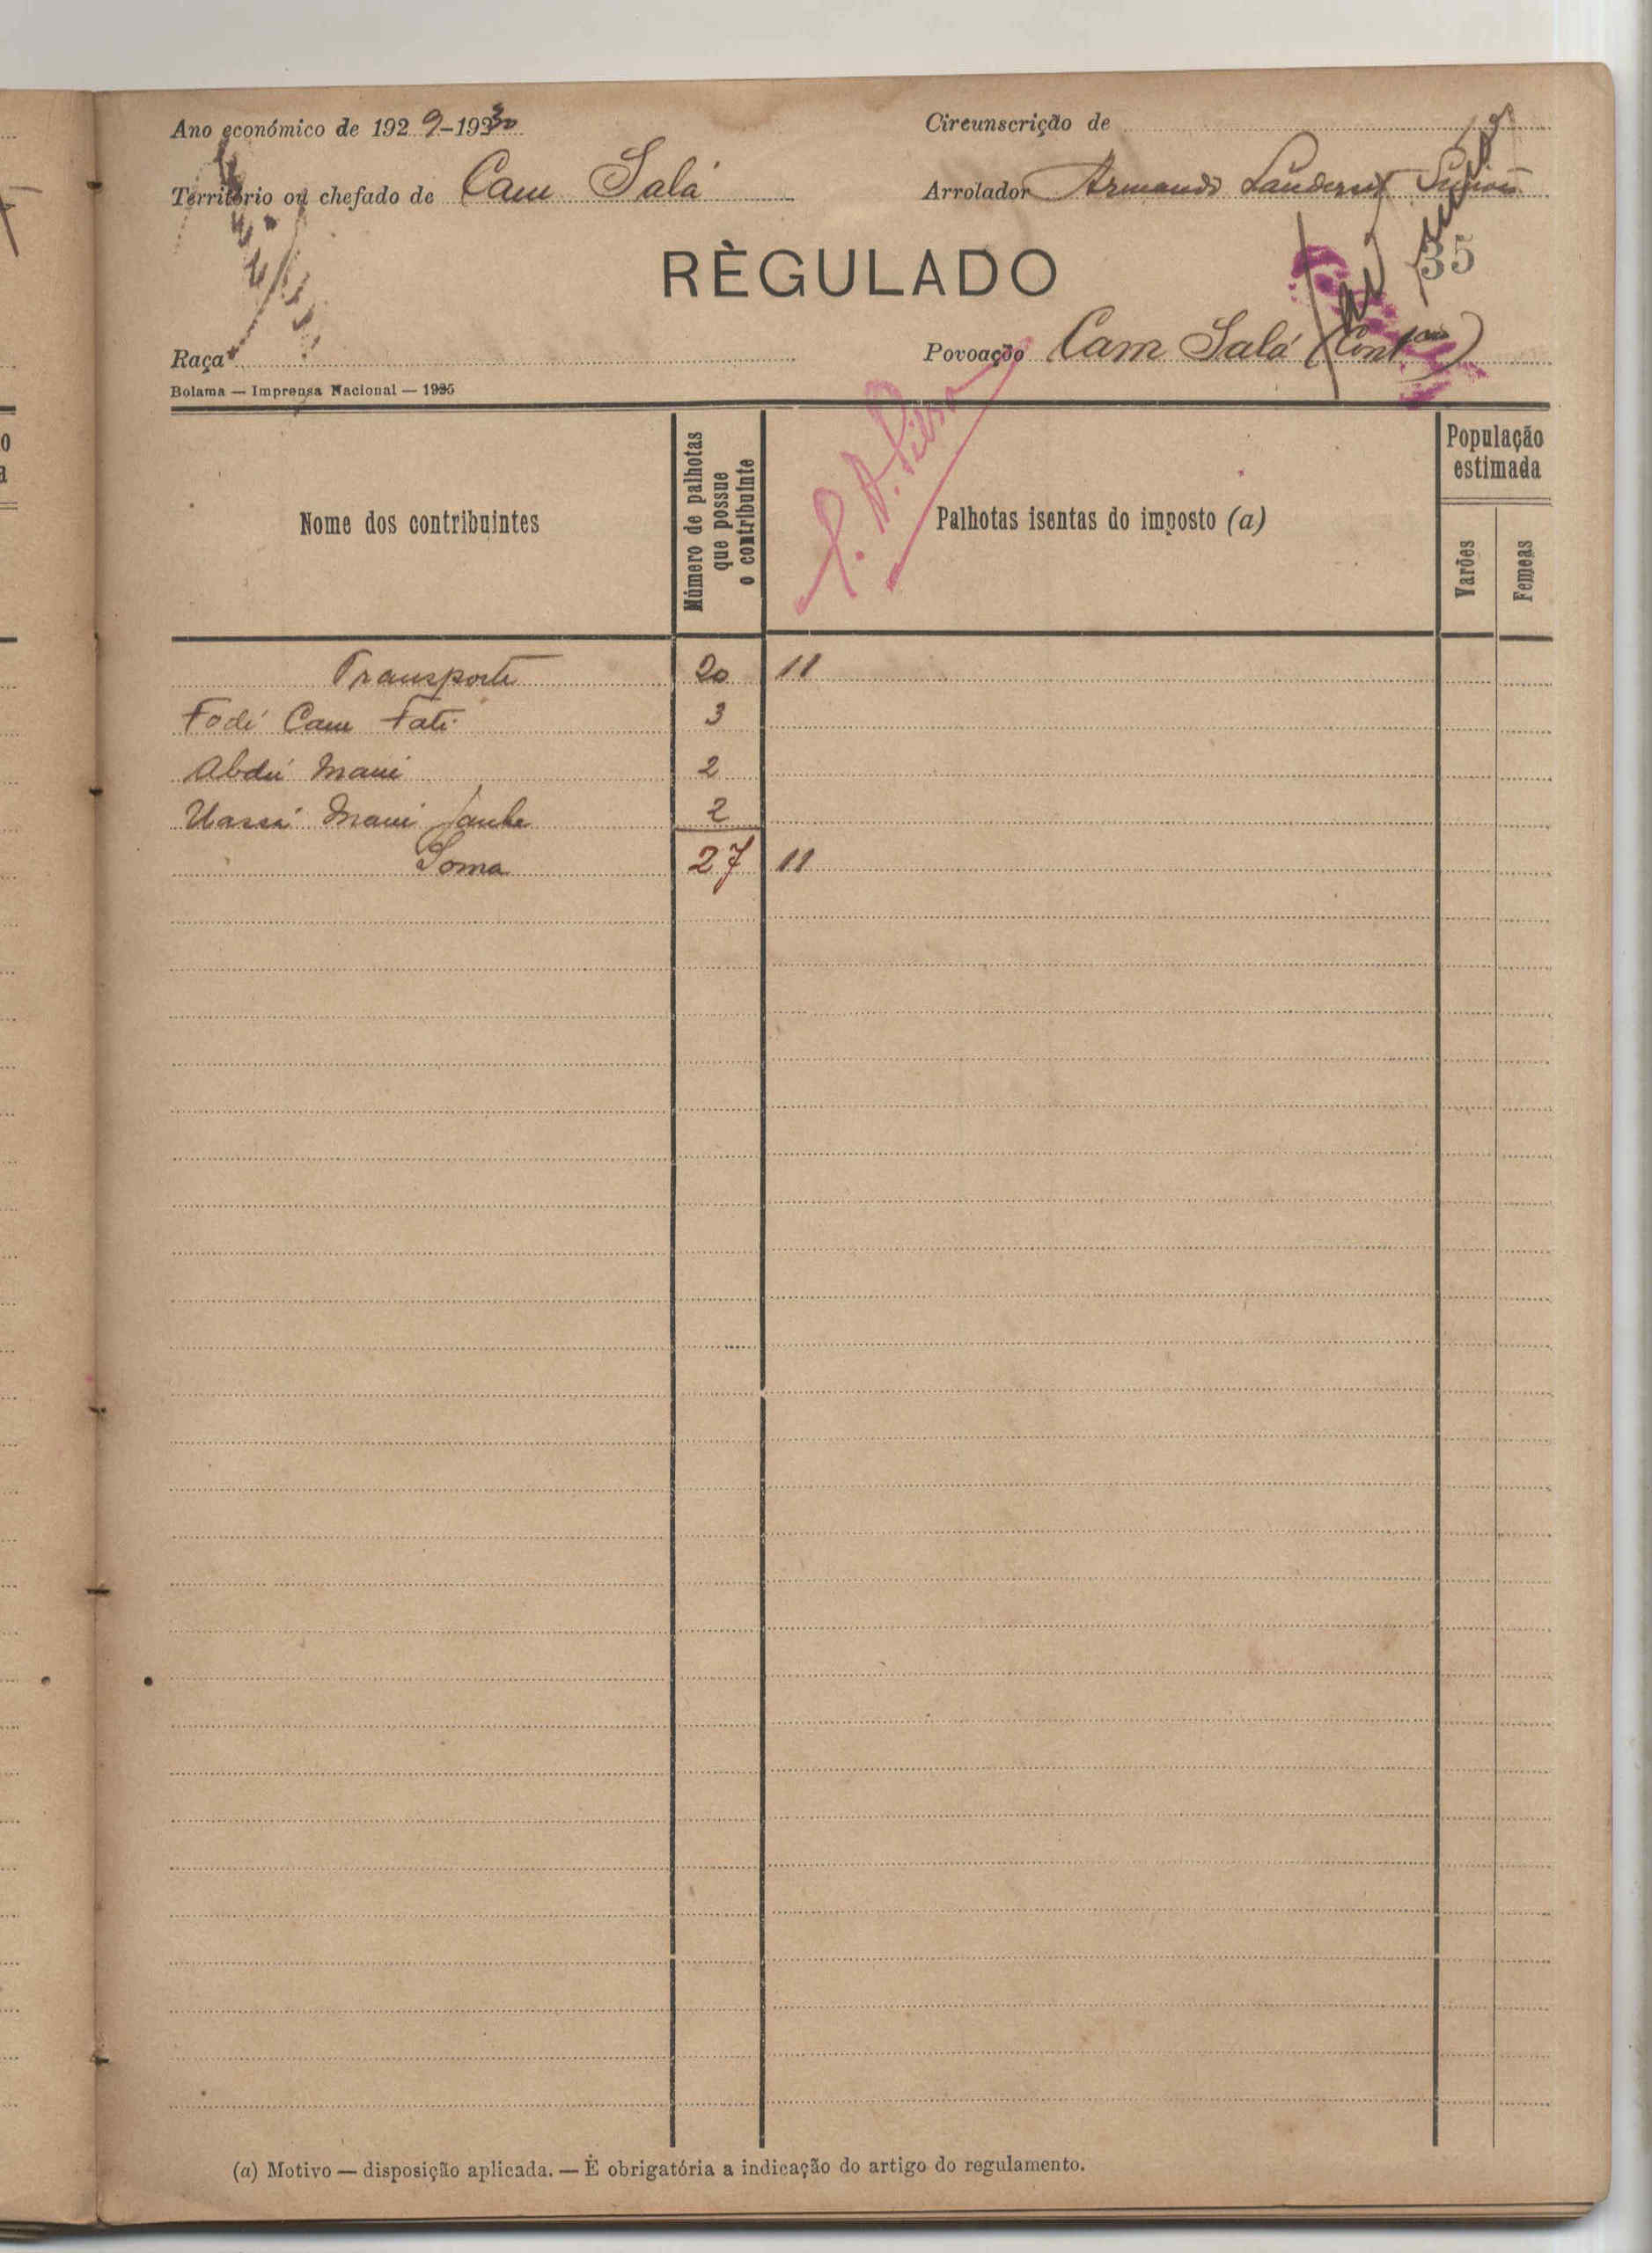 Ano económico de 1929-1930
Circunscrição de
Território ou chefado de Cam Salá
Arrolador Armando
RÈGULADO
35
Raça
Povoação Cam Salá (Contção)
Bolama — Imprensa Nacional — 1925
Nome dos contribuintes
Número de palhotas que possue o contribuinte
Palhotas isentas do imposto (a)
População estimada
Varões
Femeas
Transporte 20 11
Fodé Cam Fati 3
Abdú Mané 2
Mané 2
Soma 27 11
(a) Motivo — disposição aplicada. — È obrigatória a indicação do artigo do regulamento.